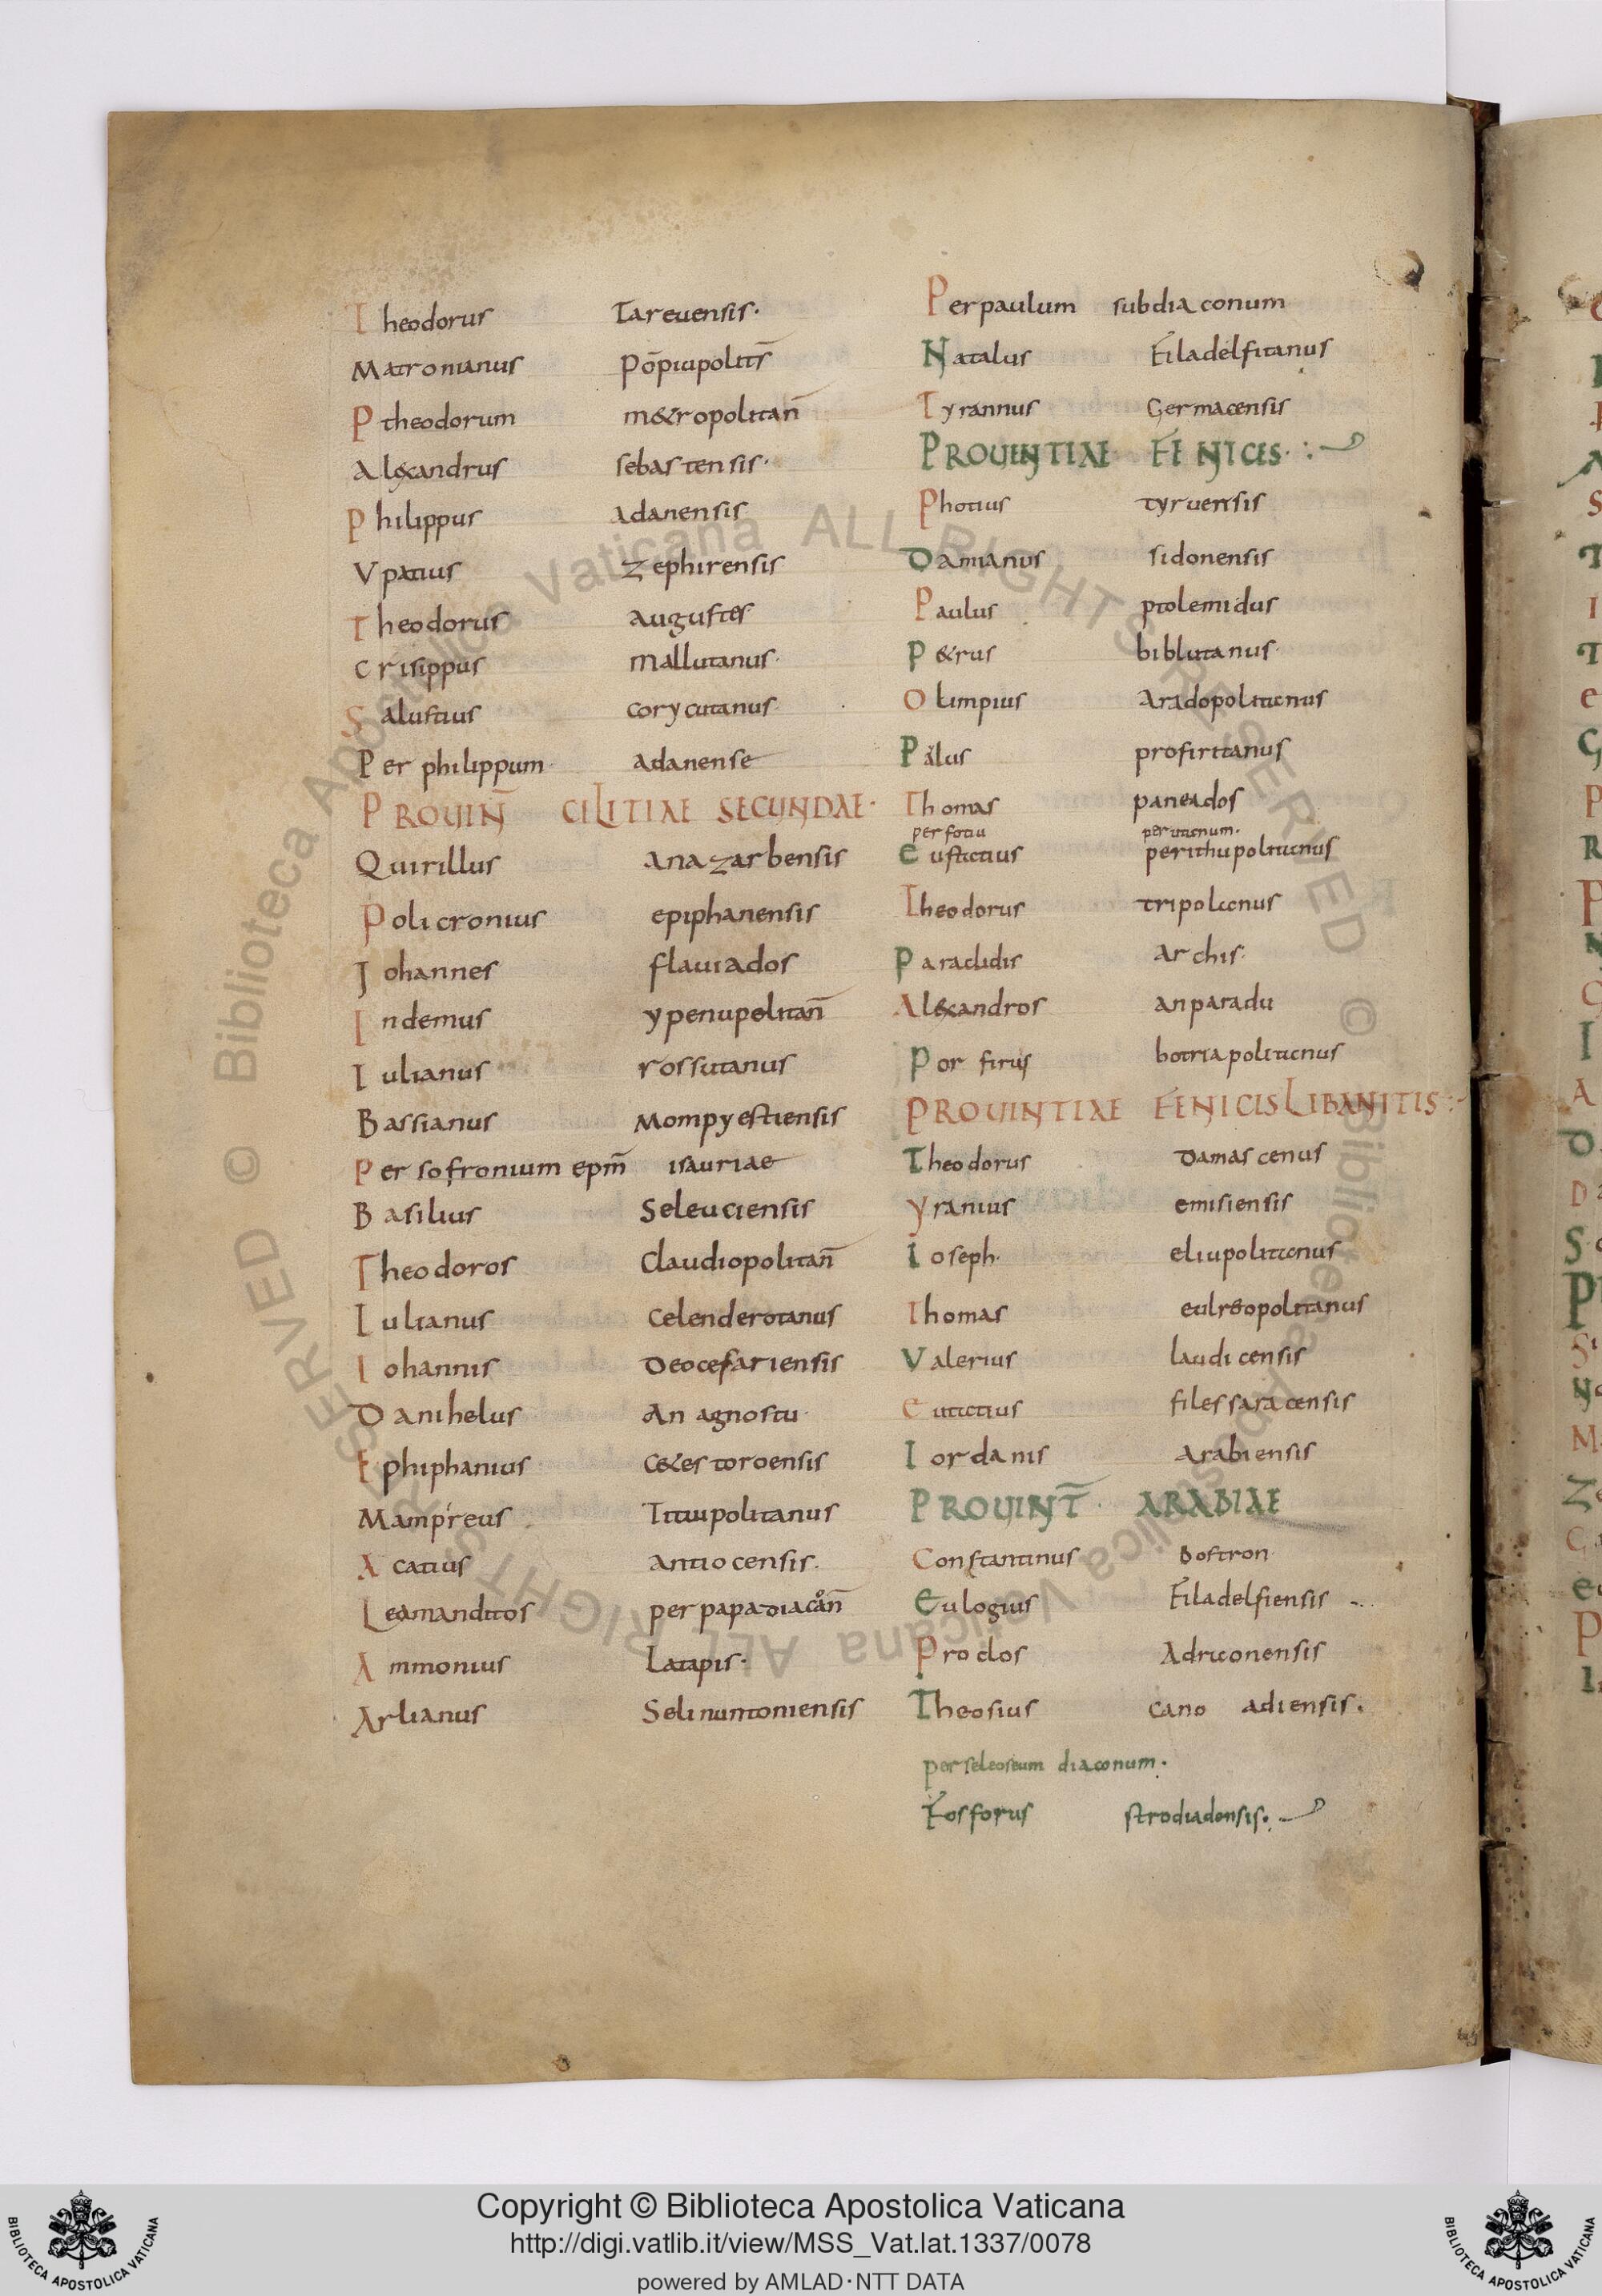 Theodorus Tareuensis·
Matronianus Põpiupolitis̄
P theodorum m&ropolitan̄
Alexandrus sebastensis·
Philippus Adanensis
Vpatius Zephirensis
Theodorus Augustes
Crisippus Mallutanus·
Salustius corycutanus
Per philippum adanense
PROUIN̄ CILITIAE SECUNDAE·
Quirillus Anazarbensis
Policronius epiphanensis
Johannes flauiados
Indemus ypenupolitan̄
Iulianus rossutanus
Bassianus Mompyestiensis
Per sofronium epm̄ isauriae
Basilius Seleuciensis
Theodoros Claudiopolitan̄
Iulianus Celenderotanus
Iohannis Deocesariensis
Danihelus An agnostu·
Ephiphanius Ce&estoroensis
Mampreus Titiupolitanus
Acatius Antiocensis.
Leamanditos per papa diacon̄
Ammonius Latapis·
Arlianus Selinuntoniensis
Per paulum subdiaconum
Natalus Filadelfitanus
Tyrannus Germacensis
PROUENTIAE FENICES·
Photius tyruensis
Damianus sidonensis
Paulus ptolemidus
P&rus bibliitanus·
Olimpius Aradopoliticnus
Palus profiritanus
Thomas paneados
per fotiu per uticnum·
Eusticius perithupoliticnus
Theodorus tripolicnus
Paraclidis archis·
Alexandros anparadu
Porfirus botriapoliticnus
PROUINTIAE FENICIS LIBANITIS:
Theodorus Damascenus
Yranius emisiensis
Ioseph· eliupoliticnus
Thomas eulreopolitanus
Valerius laudicensis
Eutictius filessaracensis
Iordanis Arabiensis
PROUINT̄· ARABIAE
Constantinus Bostron
Eulogius Filadelfiensis
Proclos Adruonensis
Theosius Cano adiensis.
per seleoseum diaconum·
Fosforus strodiadensis.
© Biblioteca Apostolica Vaticana ALL RIGHTS RESERVED © Biblioteca Apostolica Vaticana ALL RIGHTS RESERVED
Copyright © Biblioteca Apostolica Vaticana
http://digi.vatlib.it/view/MSS_Vat.lat.1337/0078
powered by AMLAD·NTT DATA
BIBLIOTECA APOSTOLICA VATICANA
BIBLIOTECA APOSTOLICA VATICANA